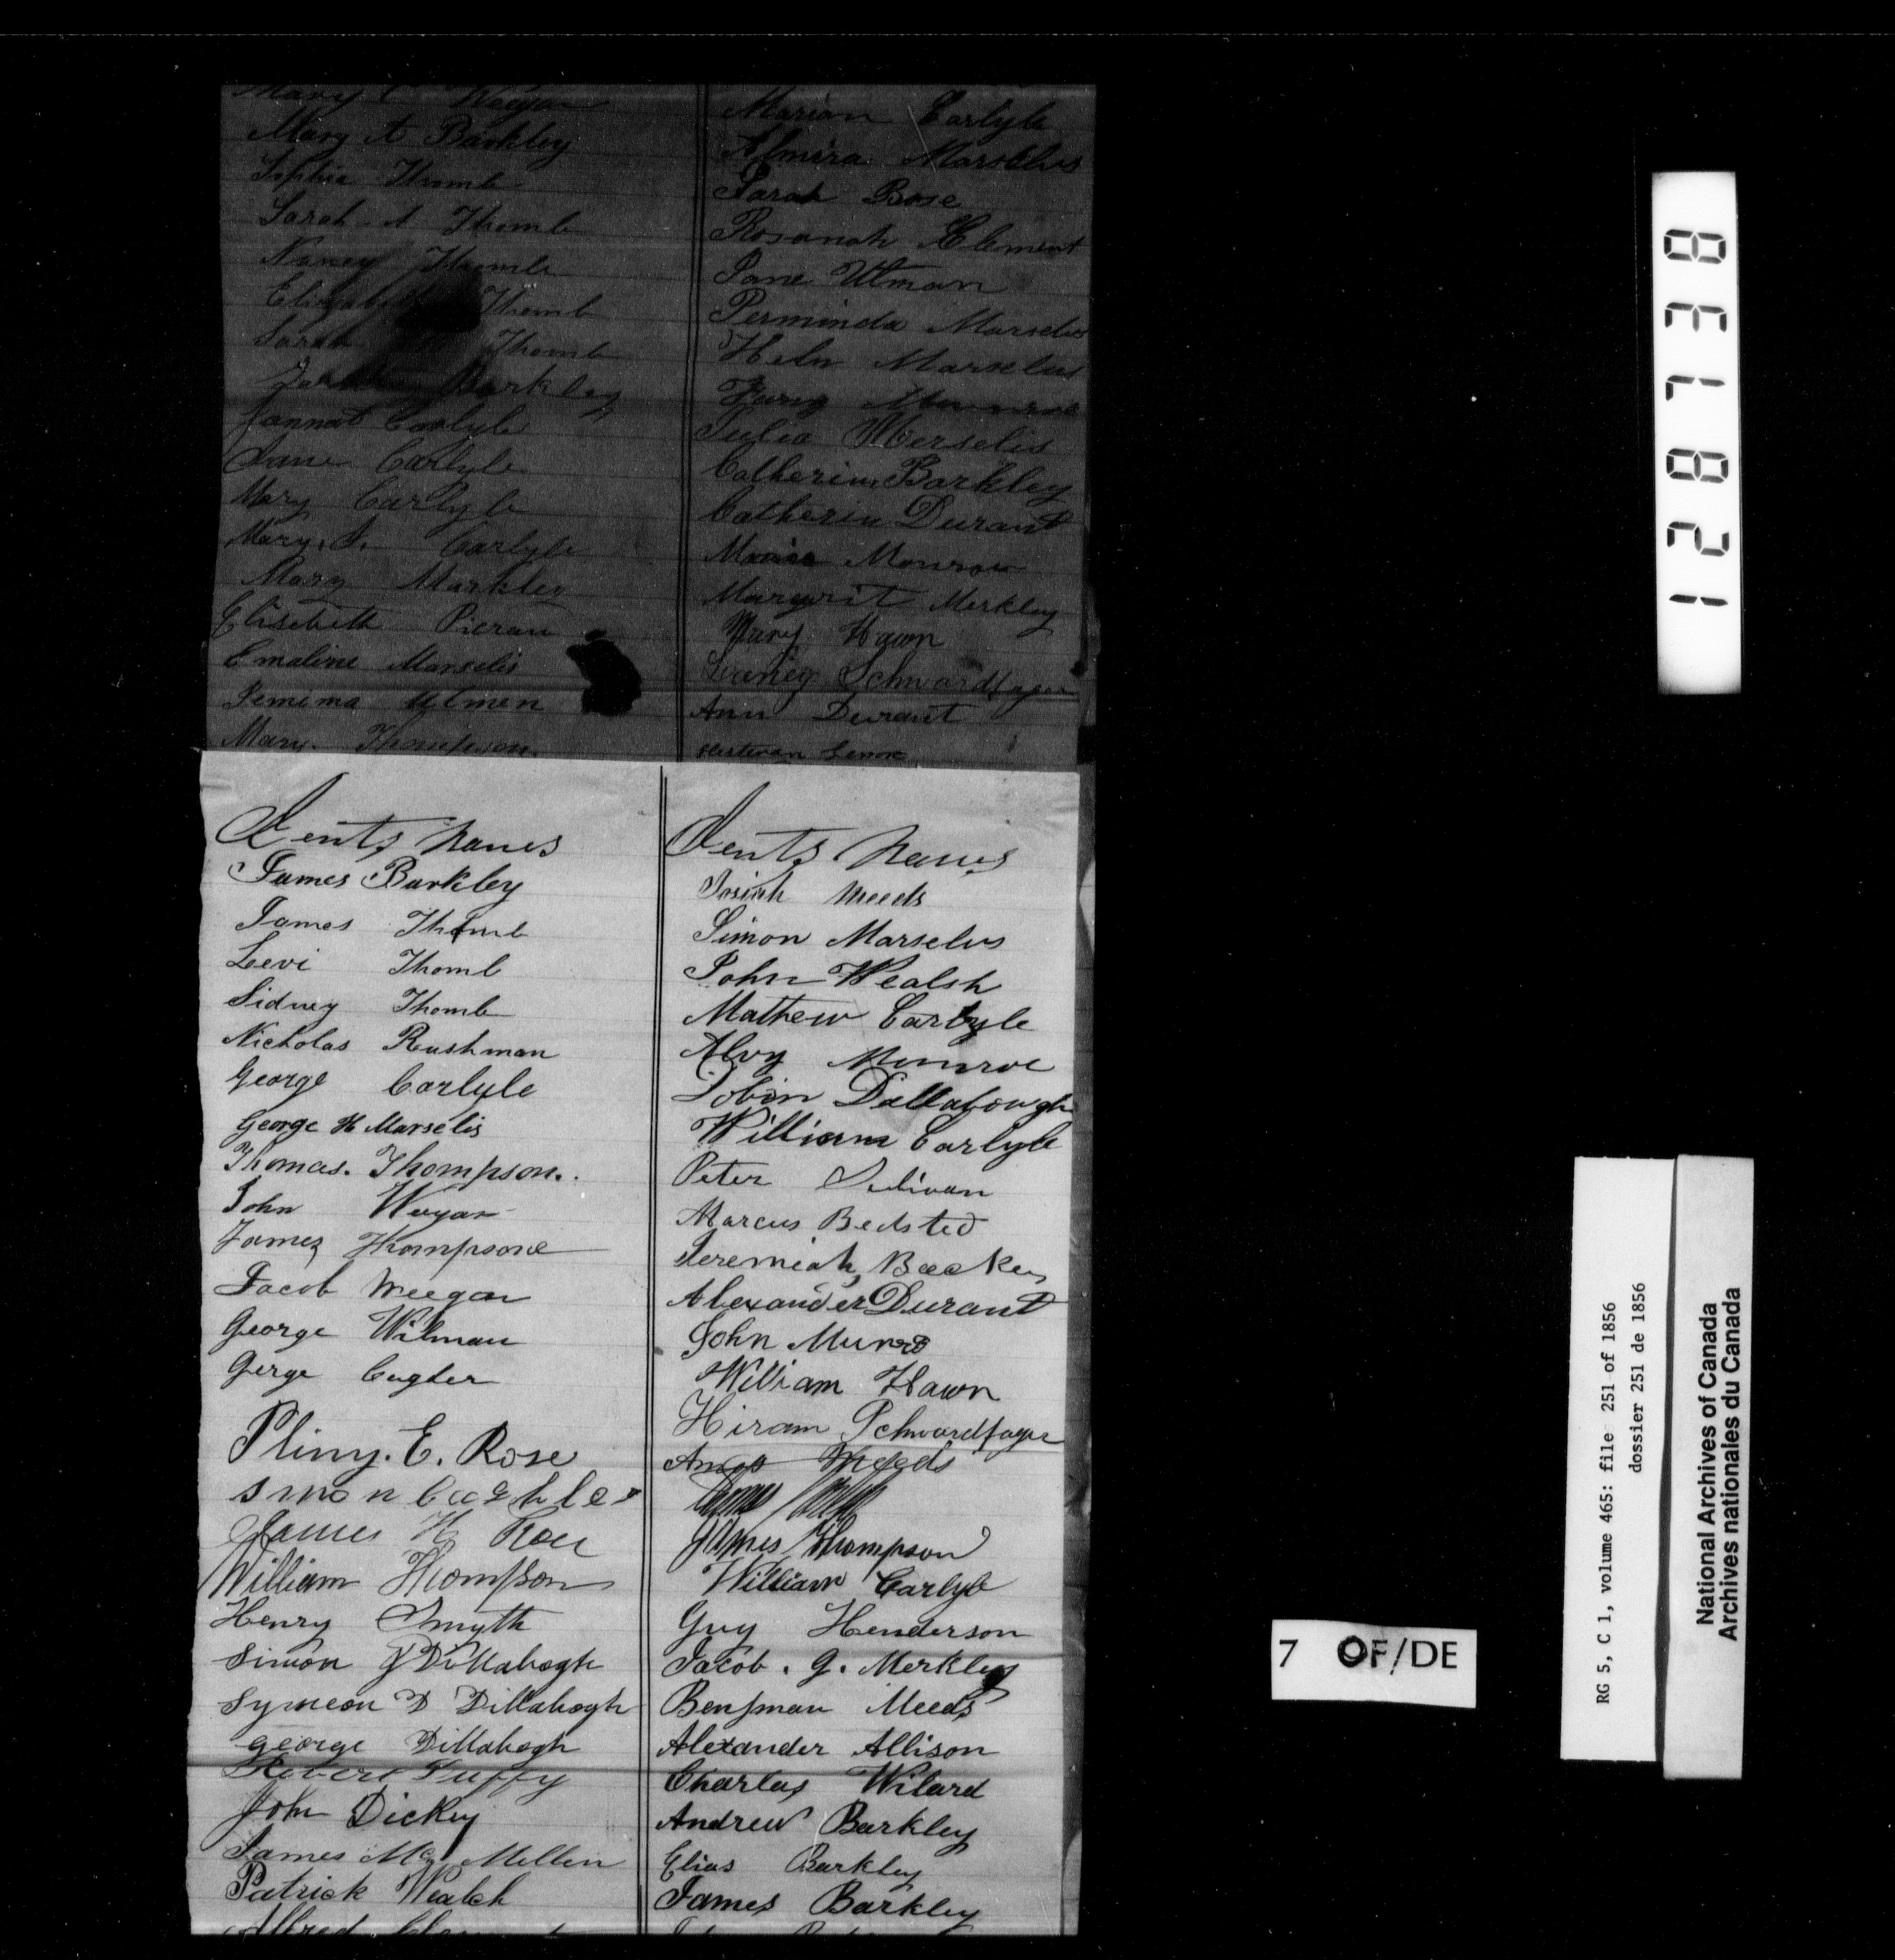 Mary C Weegan
Mary A Barkley
Sophia Thomb
Sarah A Thomb
Nancy Thomb
Elizabeth Thomb
Sarah Thomb
Barkley
Jannat Carlyle
Jane Carlyle
Mary Carlyle
Mary. J. Carlyle
Mary Markley
Elisebeth Pieran
Emaline Marselis
Jemima Utmen
Mary. Thompson.
Marion Carlyle
Almira Marselus
Sarah Bose
Rosanah Clement
Jane Utman
Perminda Marselus
Heln Marselus
Fany Monroe
Julia Merselis
Catherine Barkley
Catherin Durant
Monroe
Margarit Merkley
Mary Hawn
Schwardfager
Ann Durant
Gents names
James Barkley
James Thomb
Leevi Thomb
Sidney Thomb
Nicholas Rushman
George Carlyle
George H Marselis
Thomas. Thompson.
John Weegan
James Thompsone
Jacob Weegan
George Wilman
Gerge Cugler
Pliny. E. Rose
Simon
James H Rose
William Thompson
Henry Smyth
Simon J Dillabogh
Symeon D Dillabogh
George Dillabogh
Robert Duffy
John Dickey
James Mc Mellen
Patrick Wealch
Alfred
Gents names
Josiah Meeds
Simon Marselus
John Wealsh
Mathew Carlyle
Alvy Monroe
Tobin Dallabough
William Carlyle
Peter Sulivan
Marcus Bedsted
Jeremiah Backus
Alexander Durant
John Munro
William Hawn
Hiram Schwardfager
Amos Meeds
James Thompson
William Carlyle
Guy Henderson
Jacob. G. Merkley
Benjman Meeds
Alexander Allison
Charlas Wilard
Andrew Barkley
Elias Barkley
James Barkley
128738
7 OF/DE
RG 5, C 1, volume 465: file 251 of 1856
dossier 251 de 1856
National Archives of Canada
Archives nationales du Canada